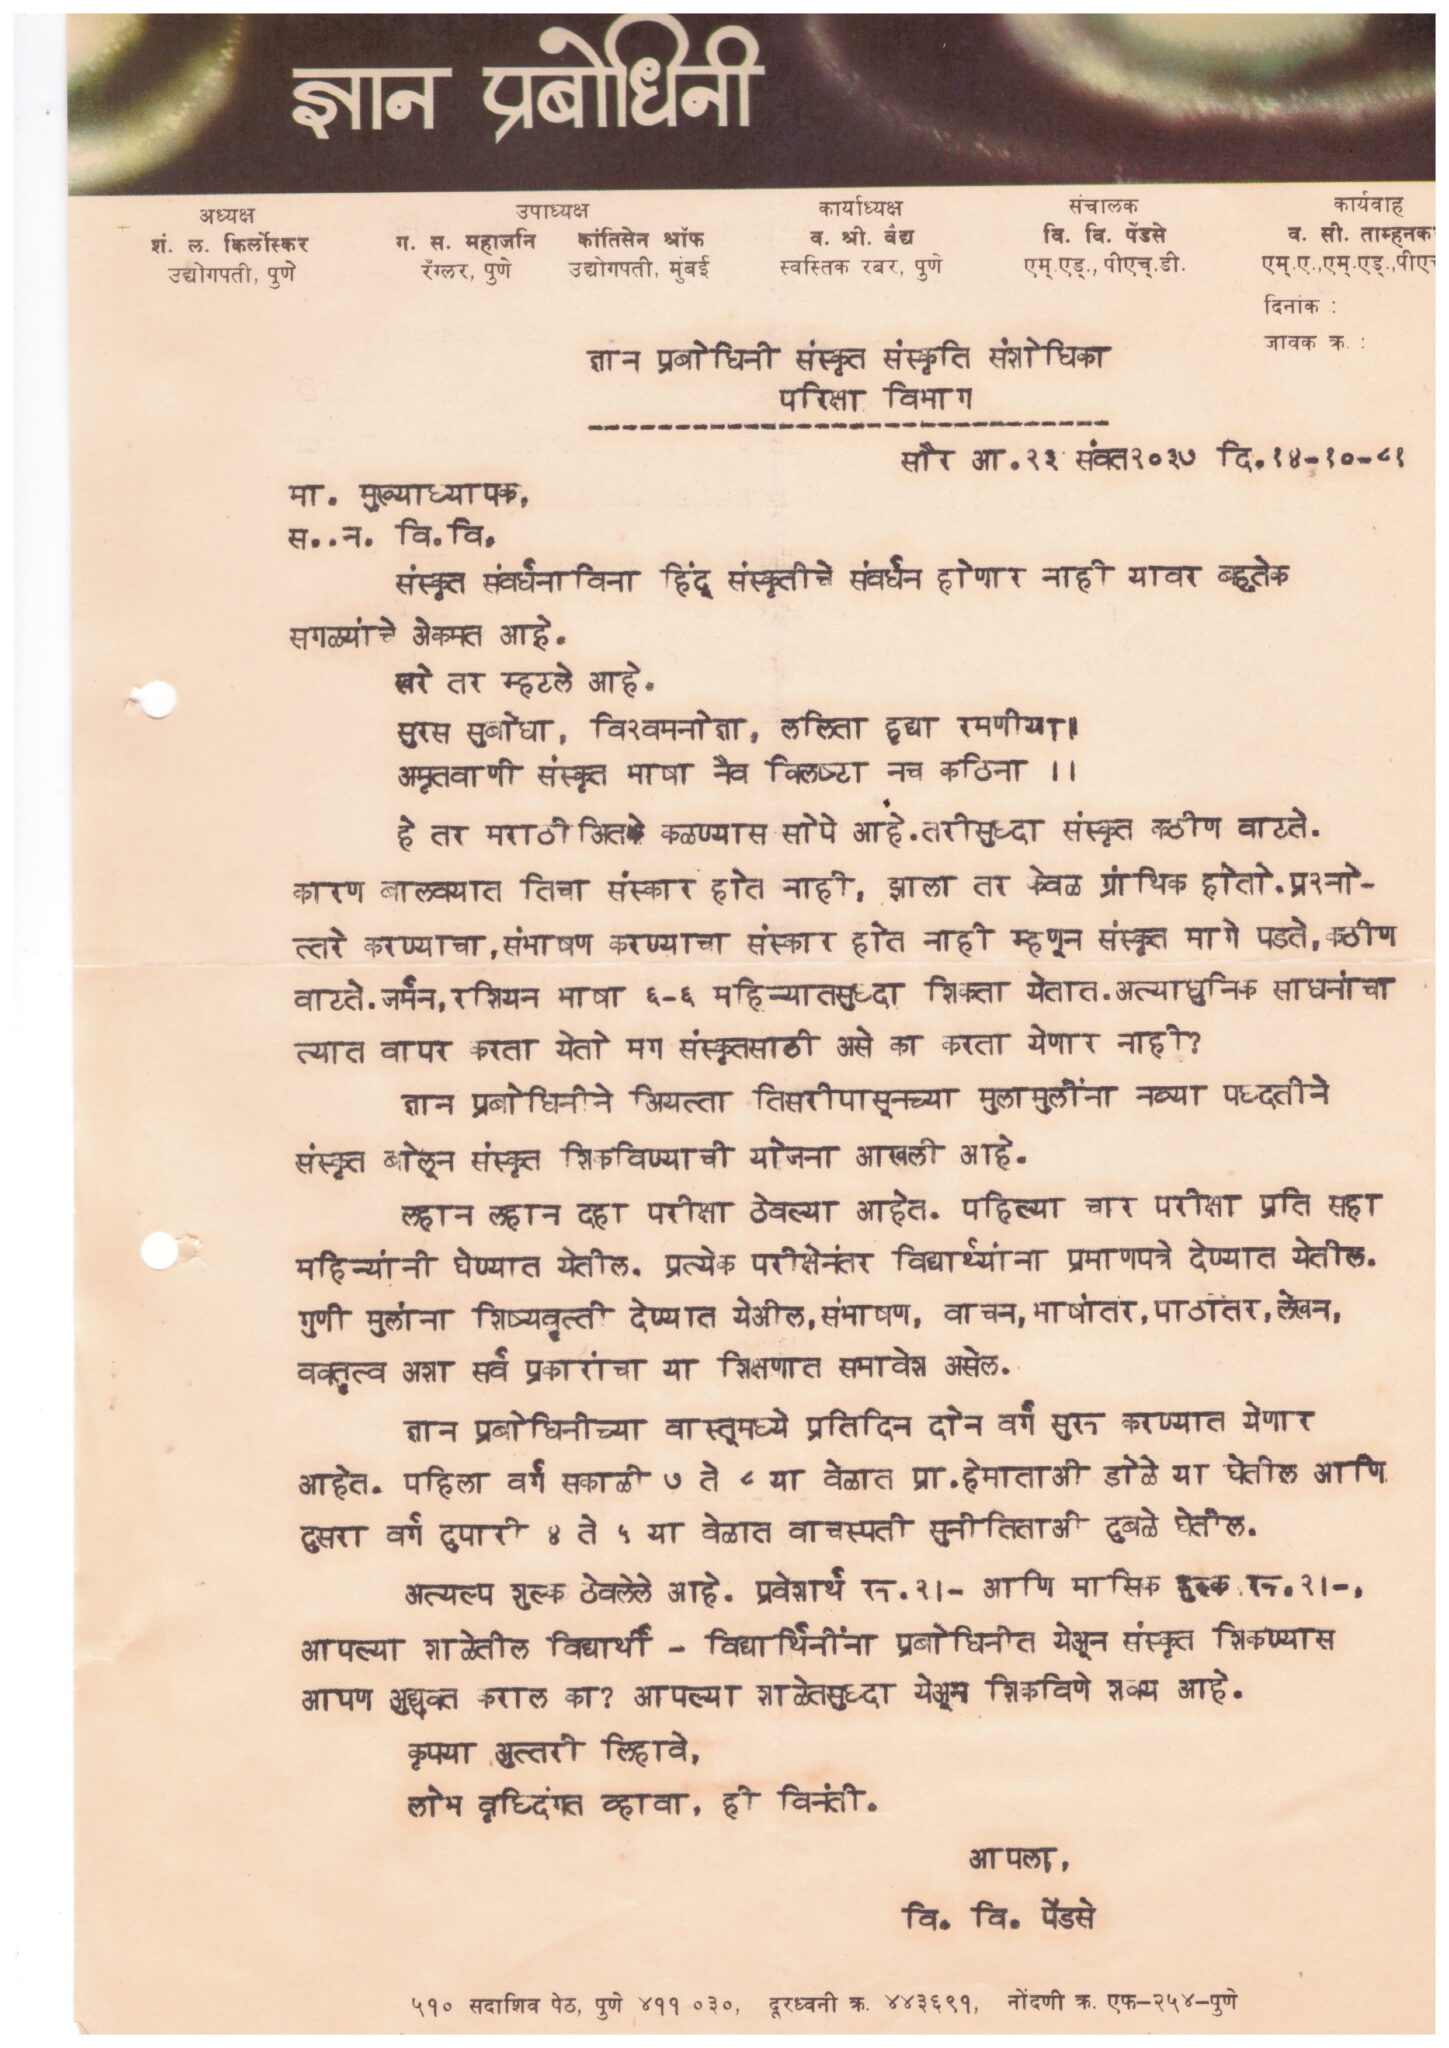 ज्ञान प्रबोधिनी
अध्यक्ष उपाध्यक्ष कार्याध्यक्ष संचालक कार्यवाह
शं. ल. किर्लोस्कर ग. स. महाजनि कांतिसेन श्रॉफ व. श्री. वैद्य वि. वि. पेंडसे व. सी. ताम्हनक
उद्योगपती, पुणे रँग्लर, पुणे उद्योगपती, मुंबई स्वस्तिक रबर, पुणे एम्.एड्., पीएच्.डी. एम्.ए.,एम्.एड्.,पीएच
दिनांक :
जावक क्र. :
ज्ञान प्रबोधिनी संस्कृत संस्कृति संशोधिका
परिक्षा विभाग
सौर आ.२३ संवत२०३७ दि.१४-१०-८१
मा. मुख्याध्यापक,
स..न. वि.वि.
संस्कृत संवर्धनाविना हिंदू संस्कृतीचे संवर्धन होणार नाही यावर बहुतेक
सगळ्यांचे अेकमत आहे.
खरे तर म्हटले आहे.
सुरस सुबोधा, विश्वमनोज्ञा, ललिता हृद्या रमणीया।
अमृतवाणी संस्कृत भाषा नैव क्लिष्टा नच कठिना ।।
हे तर मराठी अितके कळण्यास सोपे आहे.तरीसुध्दा संस्कृत कठीण वाटते.
कारण बालवयात तिचा संस्कार होत नाही, झाला तर केवळ ग्रांथिक होतो.प्रश्नो-
त्तरे करण्याचा,संभाषण करण्याचा संस्कार होत नाही म्हणून संस्कृत मागे पडते,कठीण
वाटते.जर्मन,रशियन भाषा ६-६ महिन्यातसुध्दा शिकता येतात.अत्याधुनिक साधनांचा
त्यात वापर करता येतो मग संस्कृतसाठी असे का करता येणार नाही?
ज्ञान प्रबोधिनीने अियत्ता तिसरीपासूनच्या मुलामुलींना नव्या पध्दतीने
संस्कृत बोलून संस्कृत शिकविण्याची योजना आखली आहे.
लहान लहान दहा परीक्षा ठेवल्या आहेत. पहिल्या चार परीक्षा प्रति सहा
महिन्यांनी घेण्यात येतील. प्रत्येक परीक्षेनंतर विद्यार्थ्यांना प्रमाणपत्रे देण्यात येतील.
गुणी मुलांना शिष्यवृत्ती देण्यात येअील,संभाषण, वाचन,भाषांतर,पाठांतर,लेखन,
वक्तृत्व अशा सर्व प्रकारांचा या शिक्षणात समावेश असेल.
ज्ञान प्रबोधिनीच्या वास्तूमध्ये प्रतिदिन दोन वर्ग सुरू करण्यात येणार
आहेत. पहिला वर्ग सकाळी ७ ते ८ या वेळात प्रा.हेमाताअी डोळे या घेतील आणि
दुसरा वर्ग दुपारी ४ ते ५ या वेळात वाचस्पती सुनीतिताअी दुबळे घेतील.
अत्यल्प शुल्क ठेवलेले आहे. प्रवेशार्थ रू.२।- आणि मासिक शुल्क रू.२।-,
आपल्या शाळेतील विद्यार्थी - विद्यार्थिनींना प्रबोधिनीत येअून संस्कृत शिकण्यास
आपण अुद्युक्त कराल का? आपल्या शाळेतसुध्दा येअून शिकविणे शक्य आहे.
कृपया अुत्तरी लिहावे,
लोभ वृध्दिंगत व्हावा, ही विनंती.
आपला,
वि. वि. पेंडसे
५१० सदाशिव पेठ, पुणे ४११ ०३०, दूरध्वनी क्र. ४४३६९१, नोंदणी क्र. एफ-२५४-पुणे